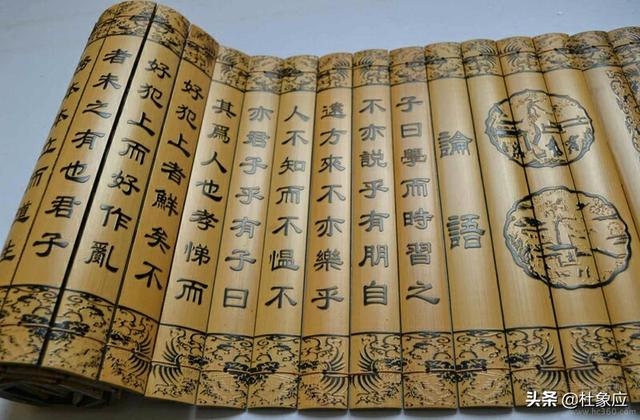 論語
子曰學而時習之
不亦說乎有朋自
遠方來不亦樂乎
人不知而不愠不
亦君子乎有子曰
其爲人也孝悌而
好犯上者鮮矣不
好犯上而好作亂
者未之有也君子
本本立而道生
头条 @杜象应
www.hc360.com